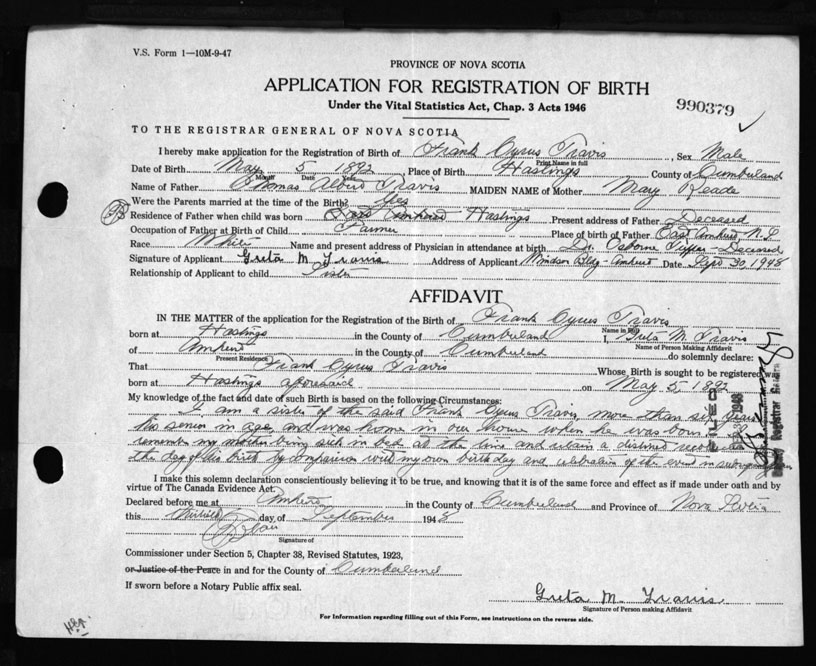 V.S. Form 1—10M-9-47
PROVINCE OF NOVA SCOTIA
APPLICATION FOR REGISTRATION OF BIRTH
Under the Vital Statistics Act, Chap. 3 Acts 1946
990379
TO THE REGISTRAR GENERAL OF NOVA SCOTIA
I hereby make application for the Registration of Birth of Frank Cyrus Travis, Sex Male
Print Name in full
Date of Birth May 5 1892 Place of Birth Hastings County of Cumberland
Month Date Year
Name of Father Thomas Albert Travis MAIDEN NAME of Mother Mary Reade
Were the Parents married at the time of the Birth? Yes
Residence of Father when child was born Amherst Hastings Present address of Father Deceased
Occupation of Father at Birth of Child Farmer Place of birth of Father East Amherst N.S.
Race White Name and present address of Physician in attendance at birth Dr. Osborne Tupper - Deceased
Signature of Applicant Greta M. Travis Address of Applicant Windsor Bldg - Amherst Date Sept 30, 1948
Relationship of Applicant to child Sister
AFFIDAVIT
IN THE MATTER of the application for the Registration of the Birth of Frank Cyrus Travis
Name in Full
born at Hastings in the County of Cumberland I, Greta M. Travis
Name of Person Making Affidavit
of Amherst in the County of Cumberland do solemnly declare:
Present Residence
That Frank Cyrus Travis Whose Birth is sought to be registered was
born at Hastings aforesaid on May 5, 1892
My knowledge of the fact and date of such Birth is based on the following Circumstances:
I am a sister of the said Frank Cyrus Travis, more than six years
his senior in age, and was home in our house when he was born. I
remember my mother being sick in bed at the time and retain a distinct
the day of his birth by comparison with my own birthday and celebration of the event in
I make this solemn declaration conscientiously believing it to be true, and knowing that it is of the same force and effect as if made under oath and by
virtue of The Canada Evidence Act.
Declared before me at Amherst in the County of Cumberland and Province of Nova Scotia
this thirtieth day of September 1948
Signature of
Commissioner under Section 5, Chapter 38, Revised Statutes, 1923,
or Justice of the Peace in and for the County of Cumberland
If sworn before a Notary Public affix seal.
Greta M. Travis
Signature of Person making Affidavit
For Information regarding filling out of this Form, see instructions on the reverse side.